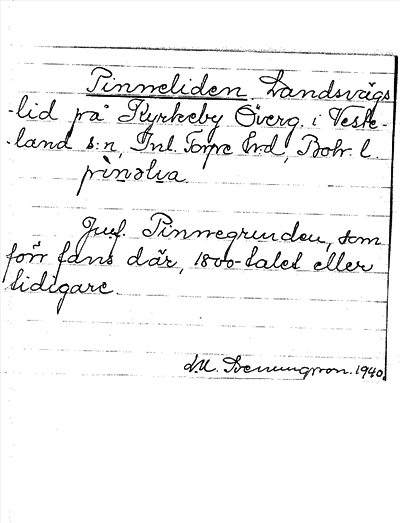 Pinneliden. Landsvägs
-lid på Kyrkeby Överg. i Veske-
-land s:n, Inl. Torpe hrd, Boh. l.
Jmf. Pinnegrinden, som
förr fans där, 1800-talet eller
tidigare.
1940.